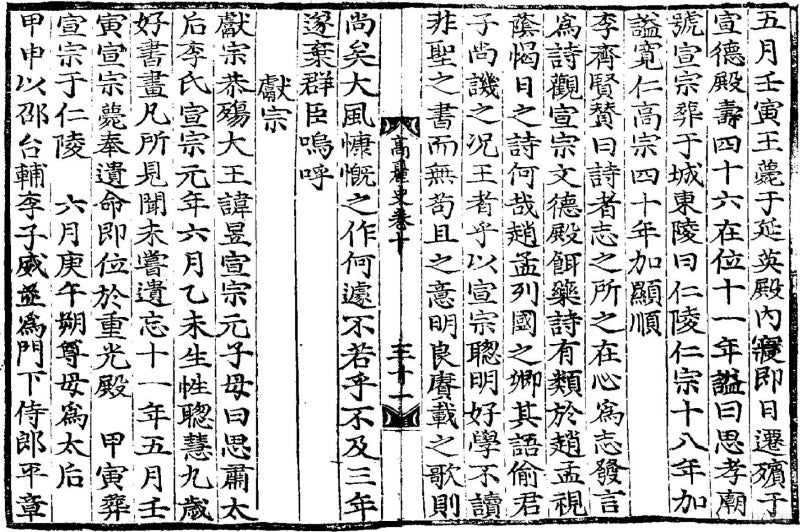 五月壬寅王薨于延英殿內寢即日遷殯于
宣德殿壽四十六在位十一年謚曰思孝廟
號宣宗葬于城東陵曰仁陵仁宗十八年加
謚寬仁高宗四十年加顯順
李齊賢贊曰詩者志之所之在心爲志發言
爲詩觀宣宗文德殿餌藥詩有類於趙孟視
蔭愒日之詩何哉趙孟列國之卿其語偷君
子尚譏之况王者乎以宣宗聰明好學不讀
非聖之書而無苟且之意明良賡載之歌則
高麗史卷十
三十一
尚矣大風慷慨之作何遽不若乎不及三年
遂棄群臣嗚呼
獻宗
獻宗恭殤大王諱昱宣宗元子母曰思肅太
后李氏宣宗元年六月乙未生性聰慧九歲
好書畫凡所見聞未嘗遺忘十一年五月壬
寅宣宗薨奉遺命即位於重光殿 甲寅葬
宣宗于仁陵 六月庚午朔尊母爲太后
甲申以邵台輔李子威並爲門下侍郎平章